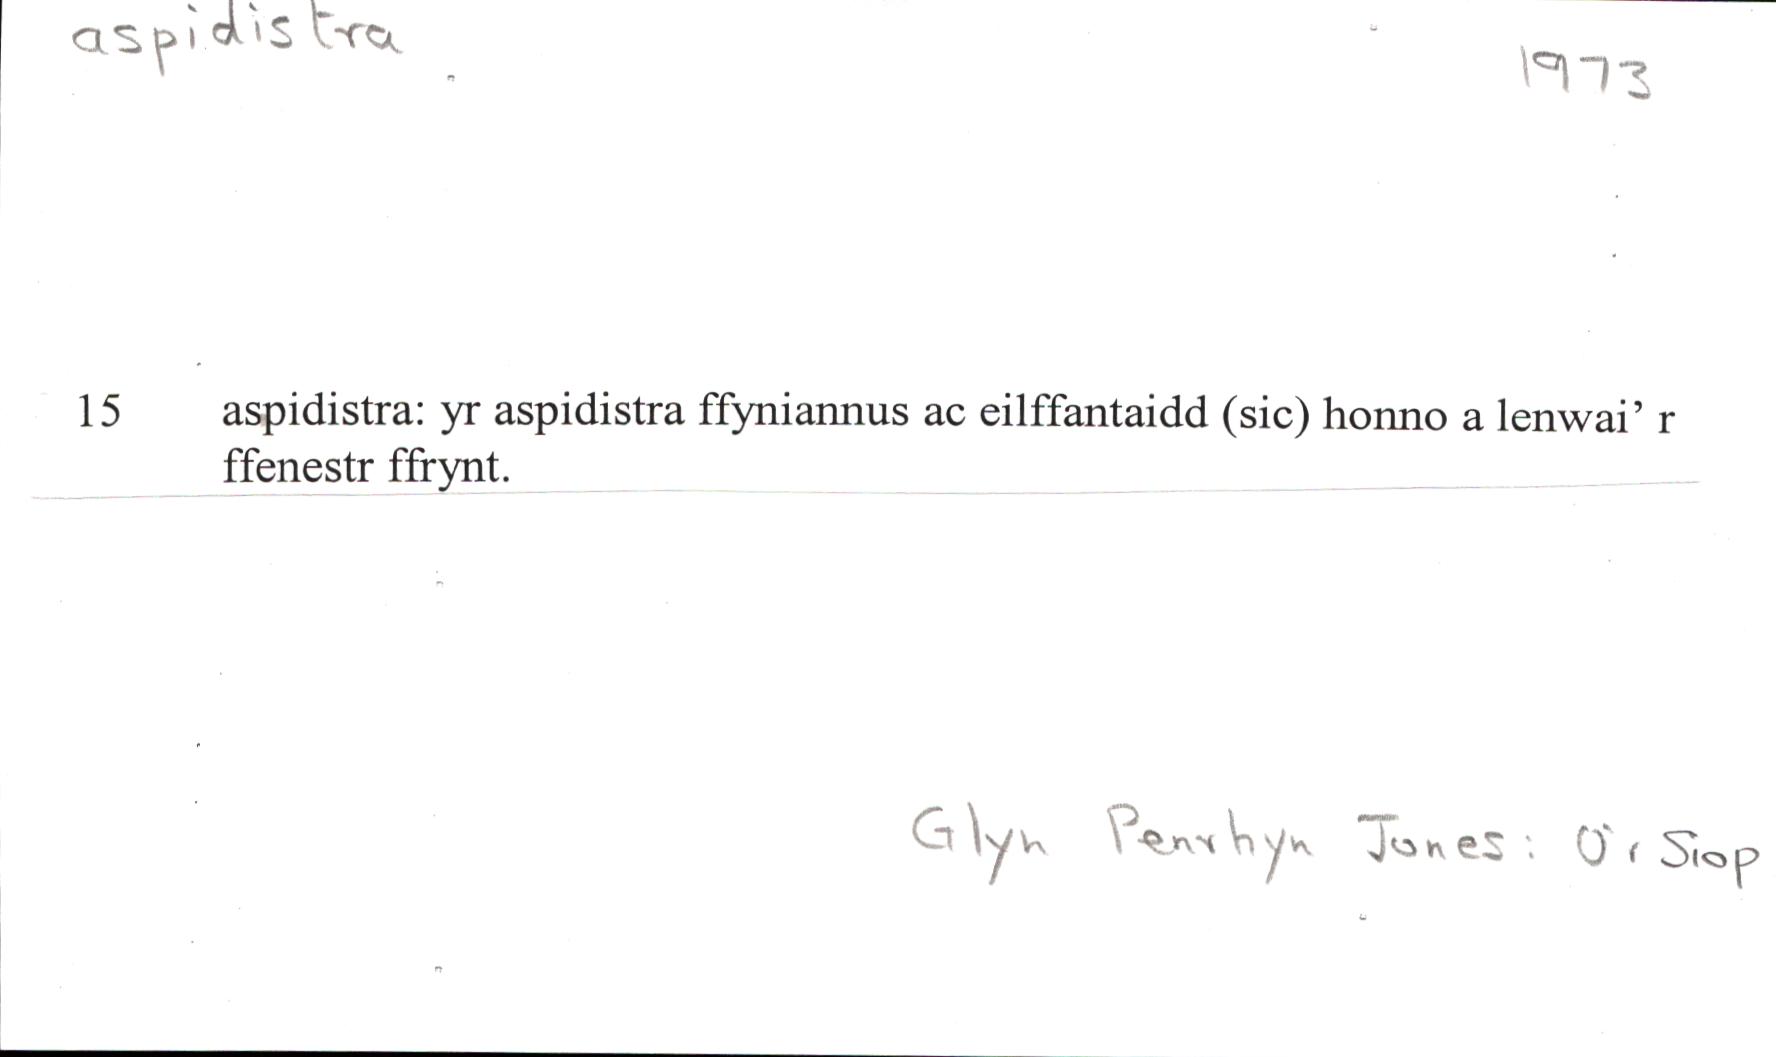 aspidistra
1973
15 aspidistra: yr aspidistra ffyniannus ac eilffantaidd (sic) honno a lenwai’ r
ffenestr ffrynt.
Glyn Penrhyn Jones: O'r Siop